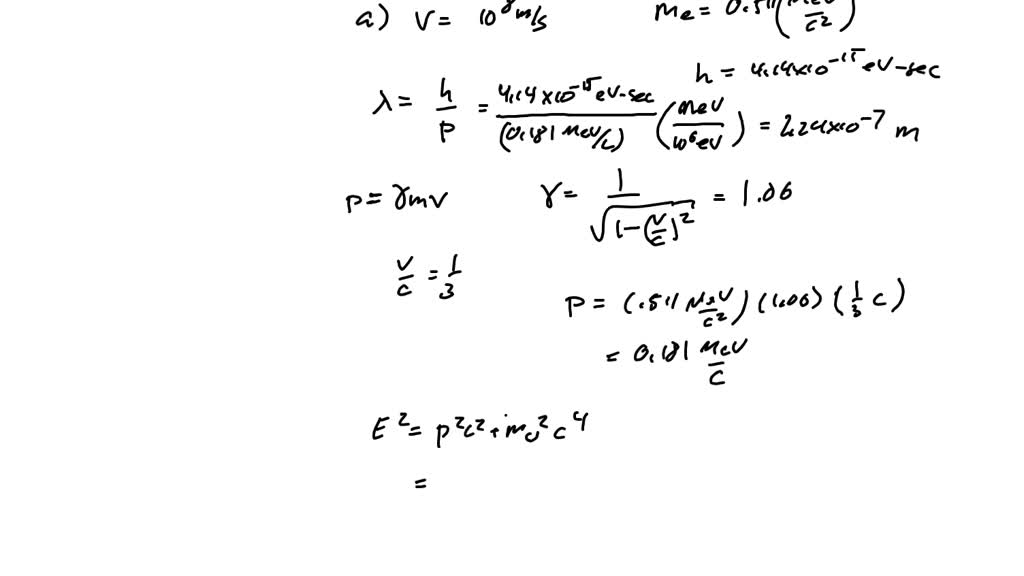 a) V = 10⁸ m/s    Me = 0.511 (MeV/c²)
h = 4.14x10⁻¹⁵ eV-sec
λ = h/p = 4.14x10⁻¹⁵ eV-sec/(0.181 MeV/c) (MeV/10⁶eV) = 2.24x10⁻⁷ m
p = γmv    γ = 1/√(1-(v/c)²) = 1.06
v/c = 1/3
P = (.511 MeV/c²)(1.06)(1/3 c)
= 0.181 MeV/c
E² = p²c² + m₀²c⁴
=